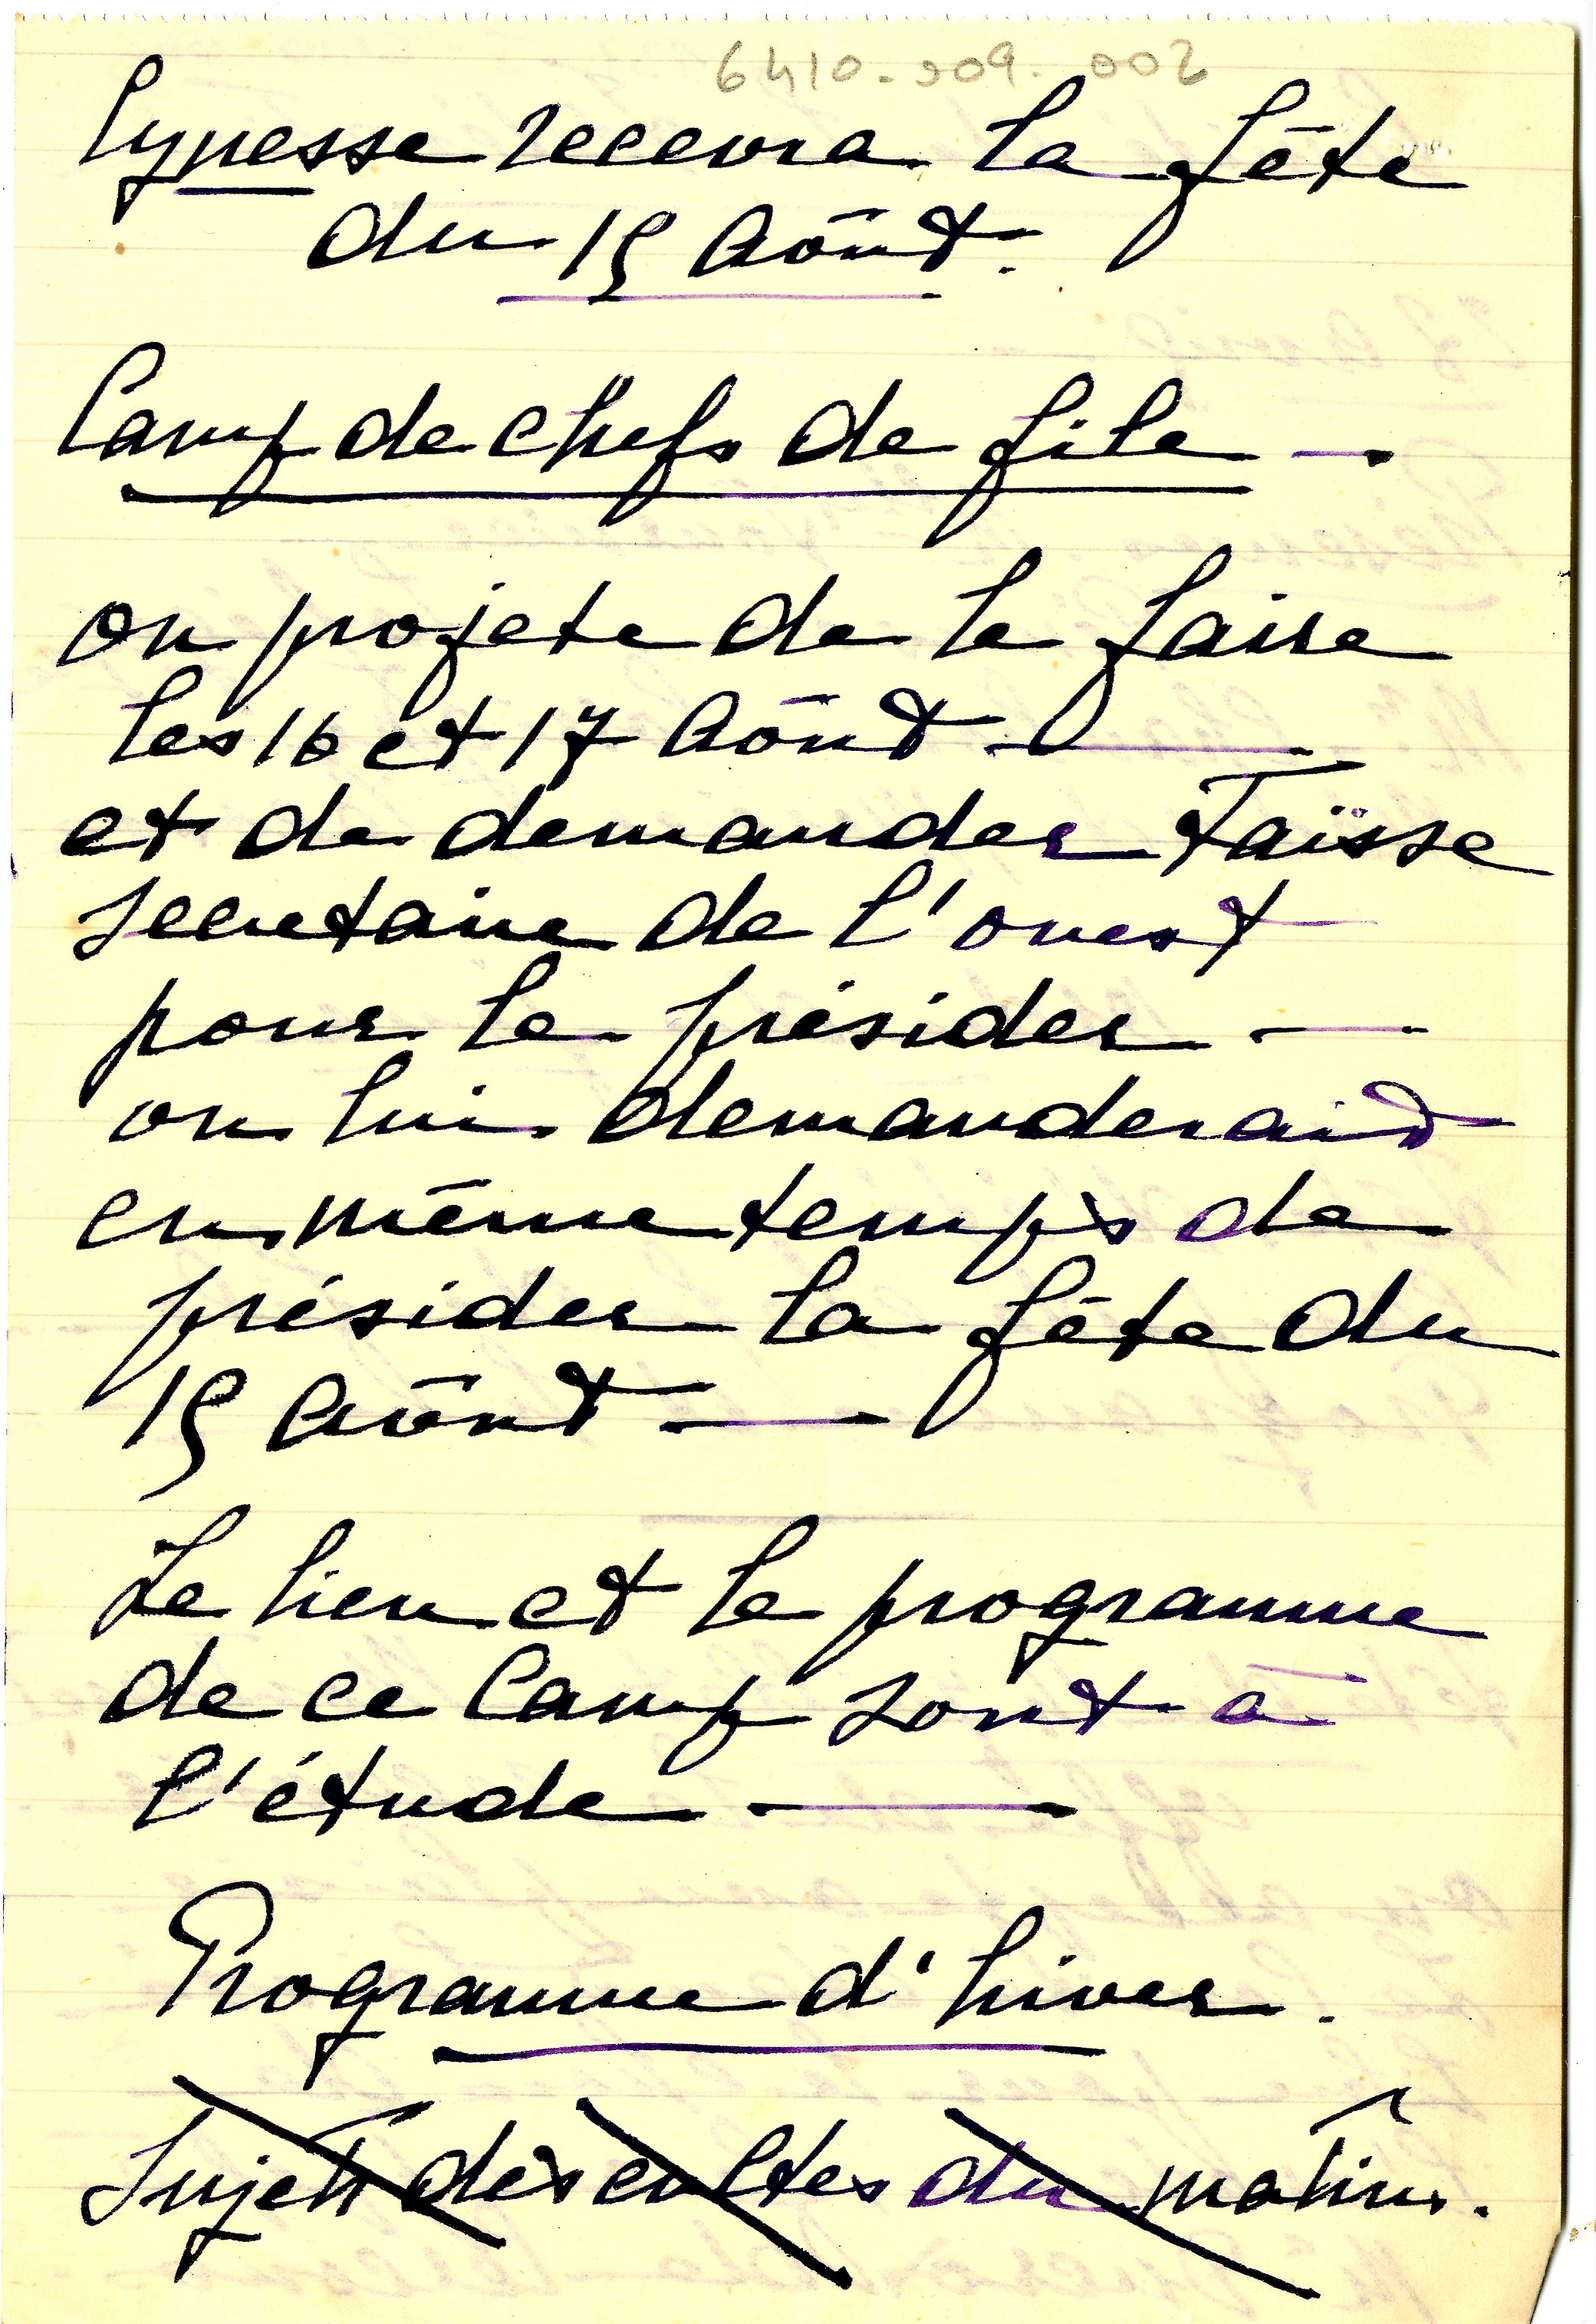 6410-909-002
Lynesse recevra la fête
du 15 Août.
Camp de chefs de file —
on projete de le faire
les 16 et 17 Août —
et de demander Faïsse
secretaire de l'ouest
pour le présider —
on lui demanderait
en même temps de
présider la fête du
15 Août —
Le lieu et le programme
de ce Camp sont à
l'étude —
Programme d'hiver.
Sujets des cultes du matin.